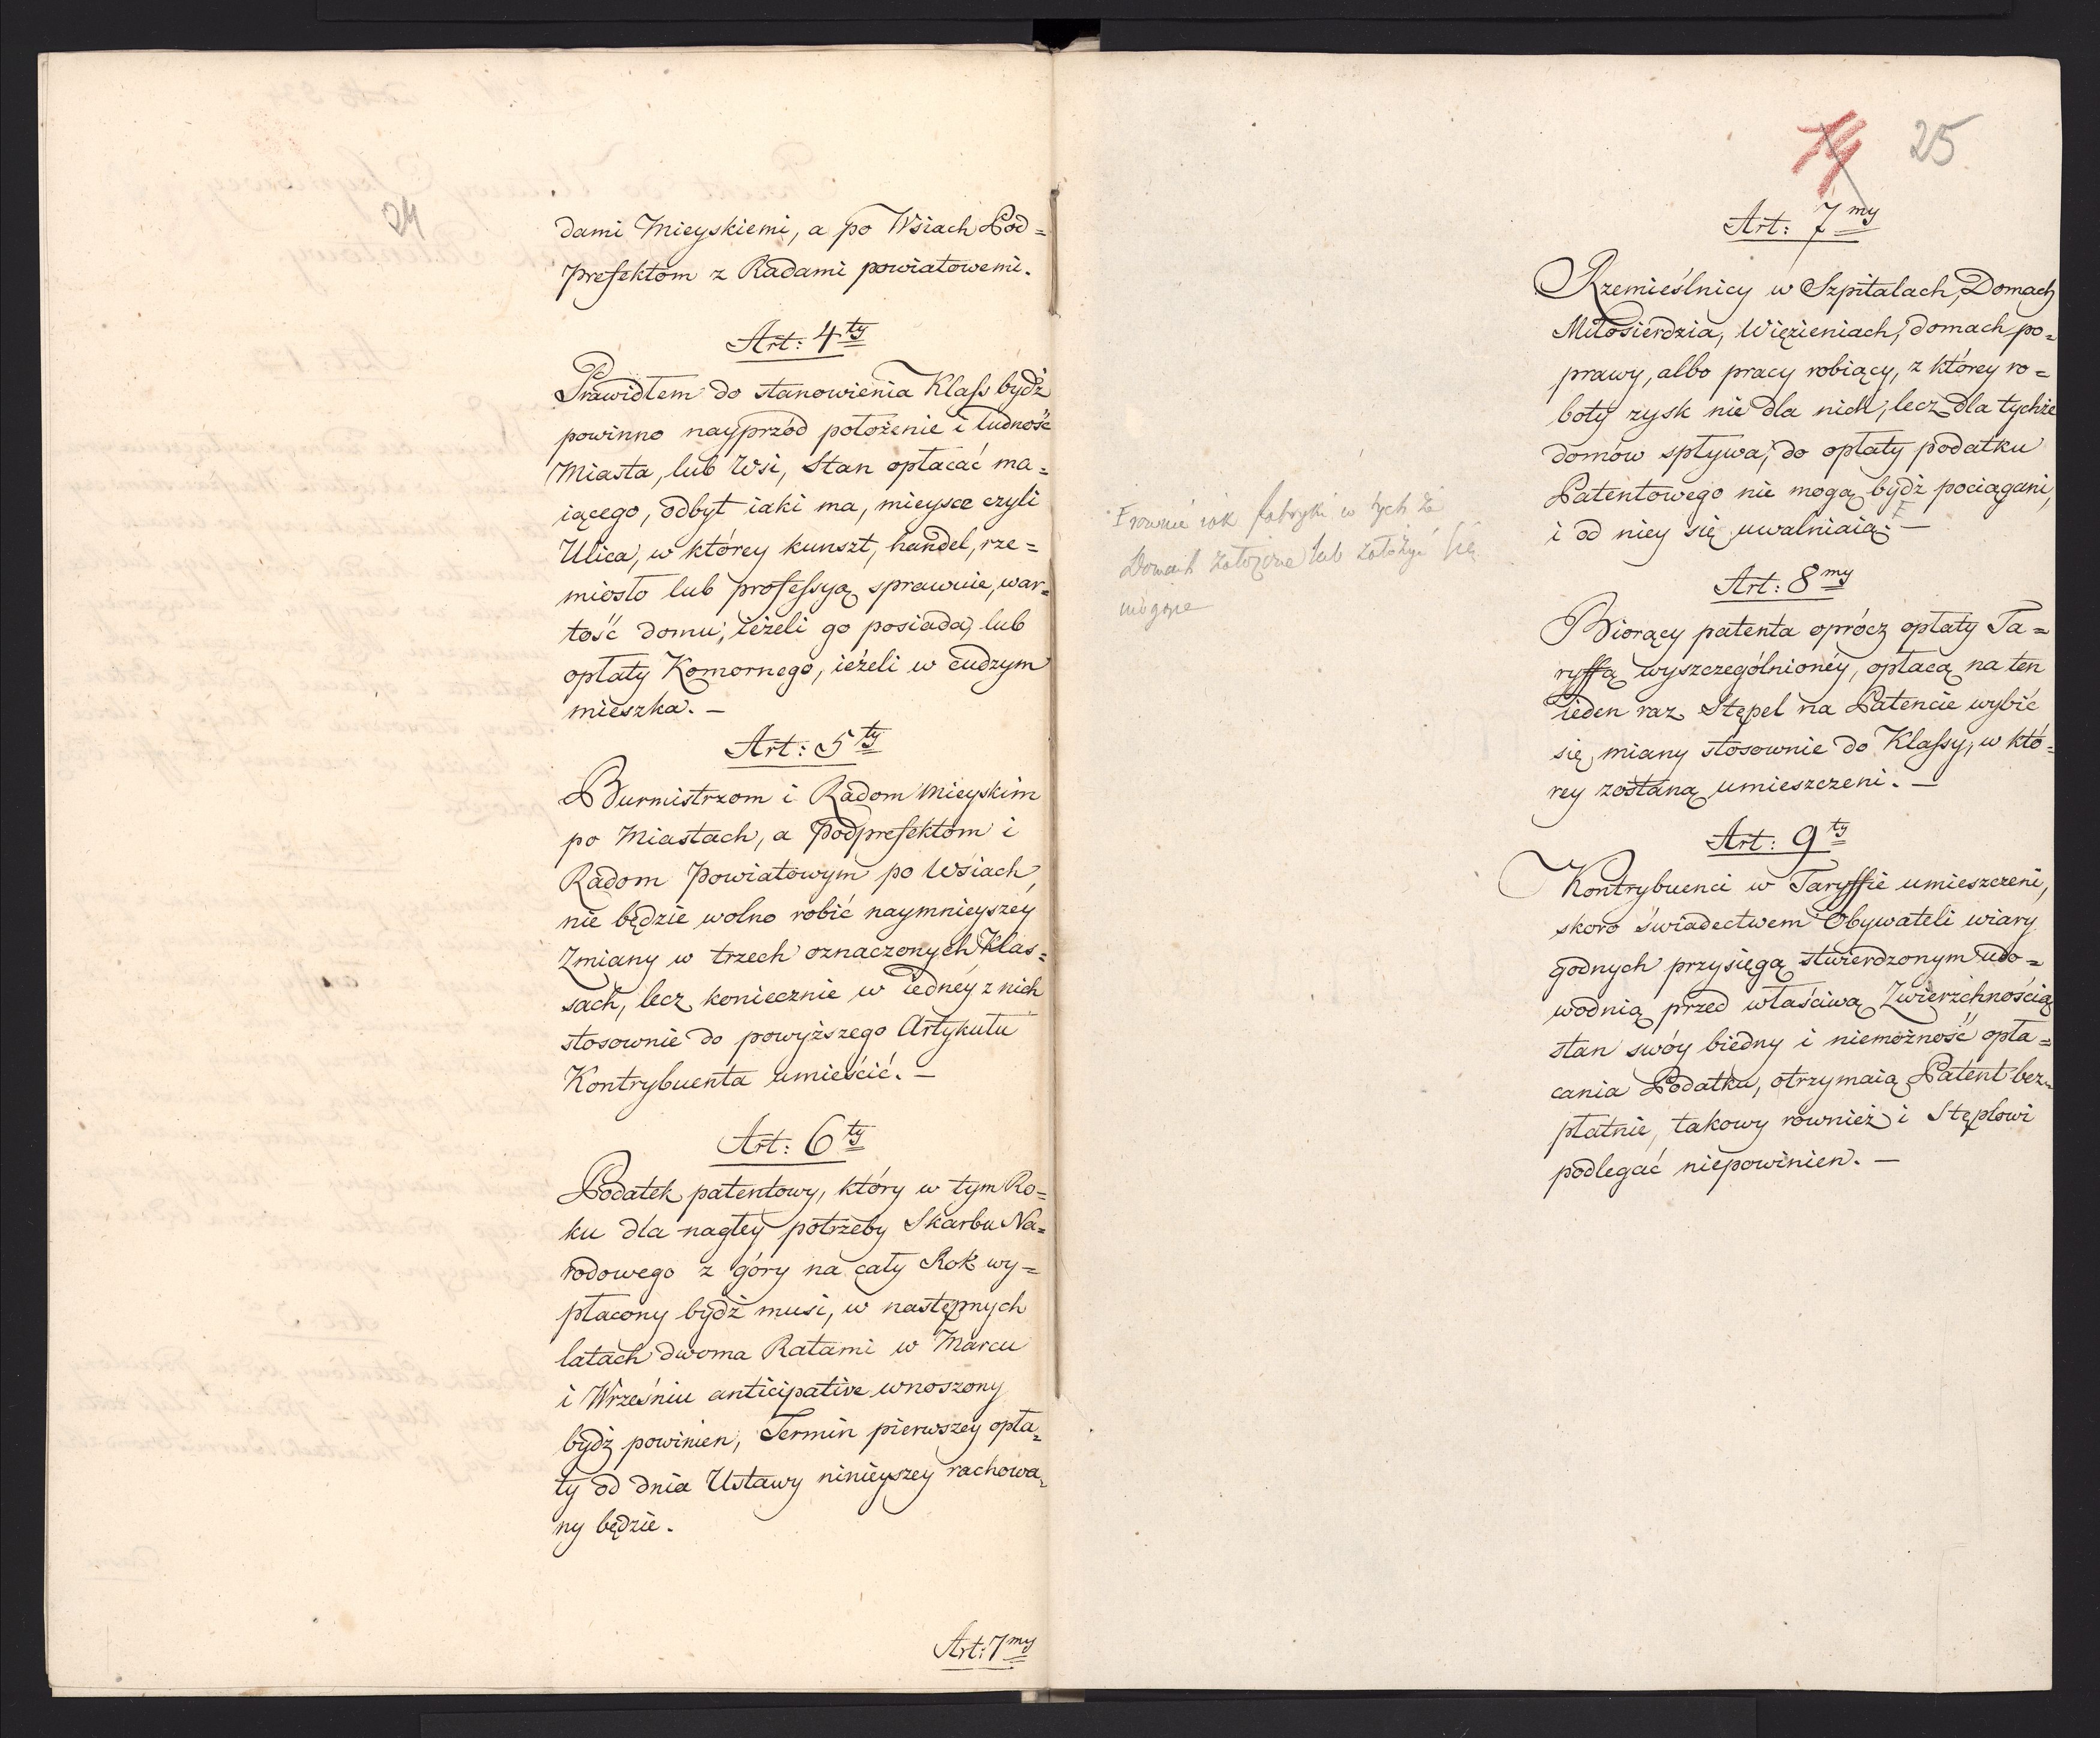 24
dami Mieyskiemi, a po Wsiach Pod=
prefektom z Radami powiatowemi.
Art: 4ty
Prawidłem do stanowienia Klass bydź
powinno nayprzód położenie i ludność
Miasta, lub Wsi, Stan opłacać ma=
iącego, odbyt iaki ma, mieysce czyli
Ulica, w którey kunszt, handel, rze=
miosło lub professyą sprawuie, war=
tość domu, ieżeli go posiada, lub
opłaty Komornego, ieżeli w cudzym
mieszka. —
Art: 5ty
Burmistrzom i Radom Mieyskim
po Miastach, a Podprefektom i
Radom Powiatowym po Wsiach,
nie będzie wolno robić naymnieyszey
Zmiany w trzech oznaczonych Klas=
sach, lecz koniecznie w iednéy z nich
stosownie do powyższego Artykułu
Kontrybuenta umieścić. —
Art: 6ty
Podatek patentowy, który w tym Ro=
ku dla nagłey potrzeby Skarbu Na=
rodowego z góry na cały Rok wy=
płacony bydź musi, w następnych
latach dwoma Ratami w Marcu
i Wrześniu anticipative wnoszony
bydź powinien, Termin pierwszey opła=
ty od dnia Ustawy ninieyszey rachowa=
ny będzie.
Art: 7my
14 25
Art: 7my
Rzemieślnicy w Szpitalach, Domach
Miłosierdzia, Więzieniach, domach po=
prawy, albo pracy robiący, z którey ro=
boty zysk nie dla nich, lecz dla tychże
domów spływa, do opłaty podatku
Patentowego nie mogą bydź pociągani,
i od niey się uwalniaią. —
F rownie iak fabryki w tych że
Domach założone lub założyć się
mogące
Art: 8my
Biorący patenta oprócz opłaty Ta=
ryffą wyszczególnionéy, opłacą na ten
ieden raz Stępel na Patencie wybić
się miany stosownie do Klassy, w któ=
rey zostaną umieszczeni. —
Art: 9ty
Kontrybuenci w Taryffie umieszczeni,
skoro świadectwem Obywateli wiary
godnych przysięgą stwierdzonym udo=
wodnią przed właściwą Zwierzchnością
stan swóy biedny i niemożność opła=
cania Podatku, otrzymaią Patent bez=
płatnie, takowy również i Stęplowi
podlegać niepowinien. —